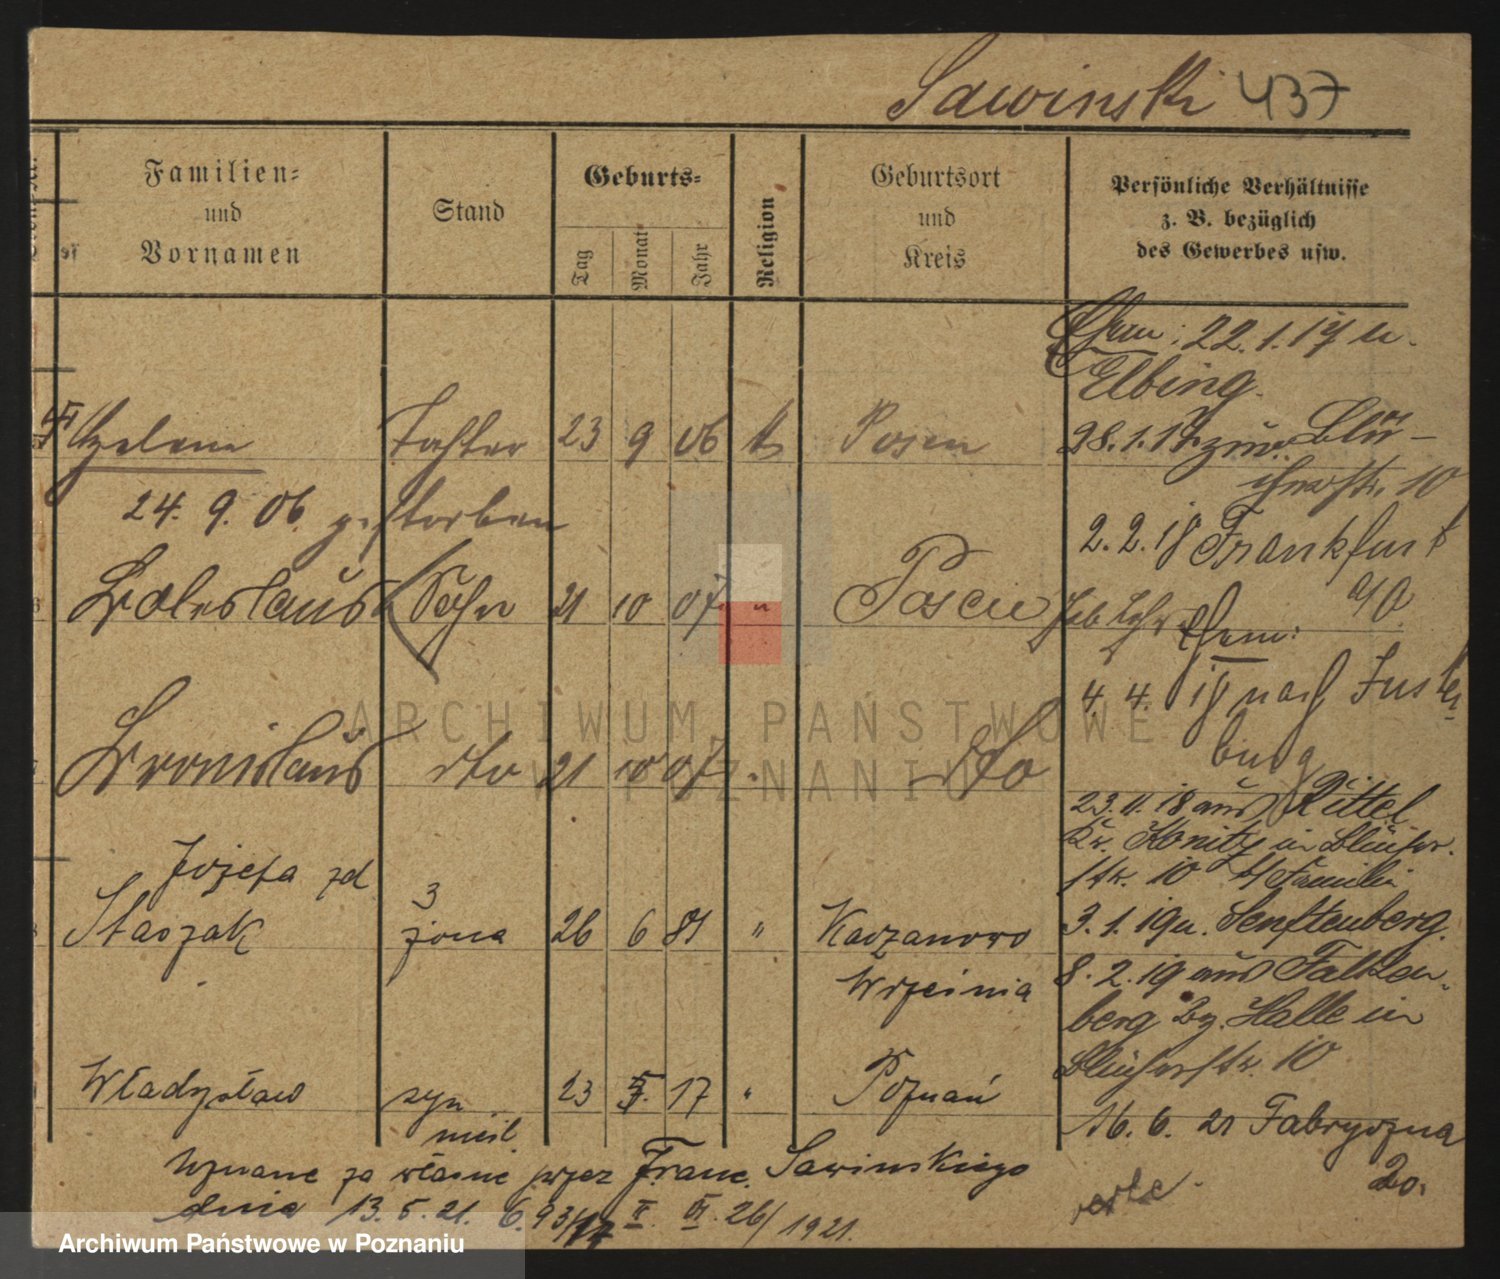 Sawinski 437
Familien=
und
Vornamen
Stand
Geburts=
Tag
Monat
Jahr
Religion
Geburtsort
und
Kreis
Persönliche Verhältnisse
z. B. bezüglich
des Gewerbes usw.
22.1.17 n.
Elbing.
Helene Tochter 23 9 06 k Posen
28.1.17 zur. Blü-
cherstr. 10
24. 9. 06. gestorben
2.2.18 Frankfurt
a/O.
Boleslaus Sohn 21 10 07 " Posen
4. 4. 18 nach Inster-
burg
Bronislaus dto 21 10 07 " dto
23.11.18 aus Rittel
Kr. Konitz in Blücher-
str. 10 Familie
Józefa zd
Staszak 3 żona 26 6 81 " Kaczanowo
Września
3.1.19 n. Senftenberg.
8.2.19 aus Falken-
berg Bz. Halle in
Blücherstr. 10
Władysław syn 23 17 " Poznań
nieśl
16. 6. 21 Fabryczna
20.
Uznane za własne przez Franc. Sawinskiego
dnia 13.5.21. 6.93/17 II. VI. 26/1921.
ARCHIWUM PAŃSTWOWE
W POZNANIU
Archiwum Państwowe w Poznaniu